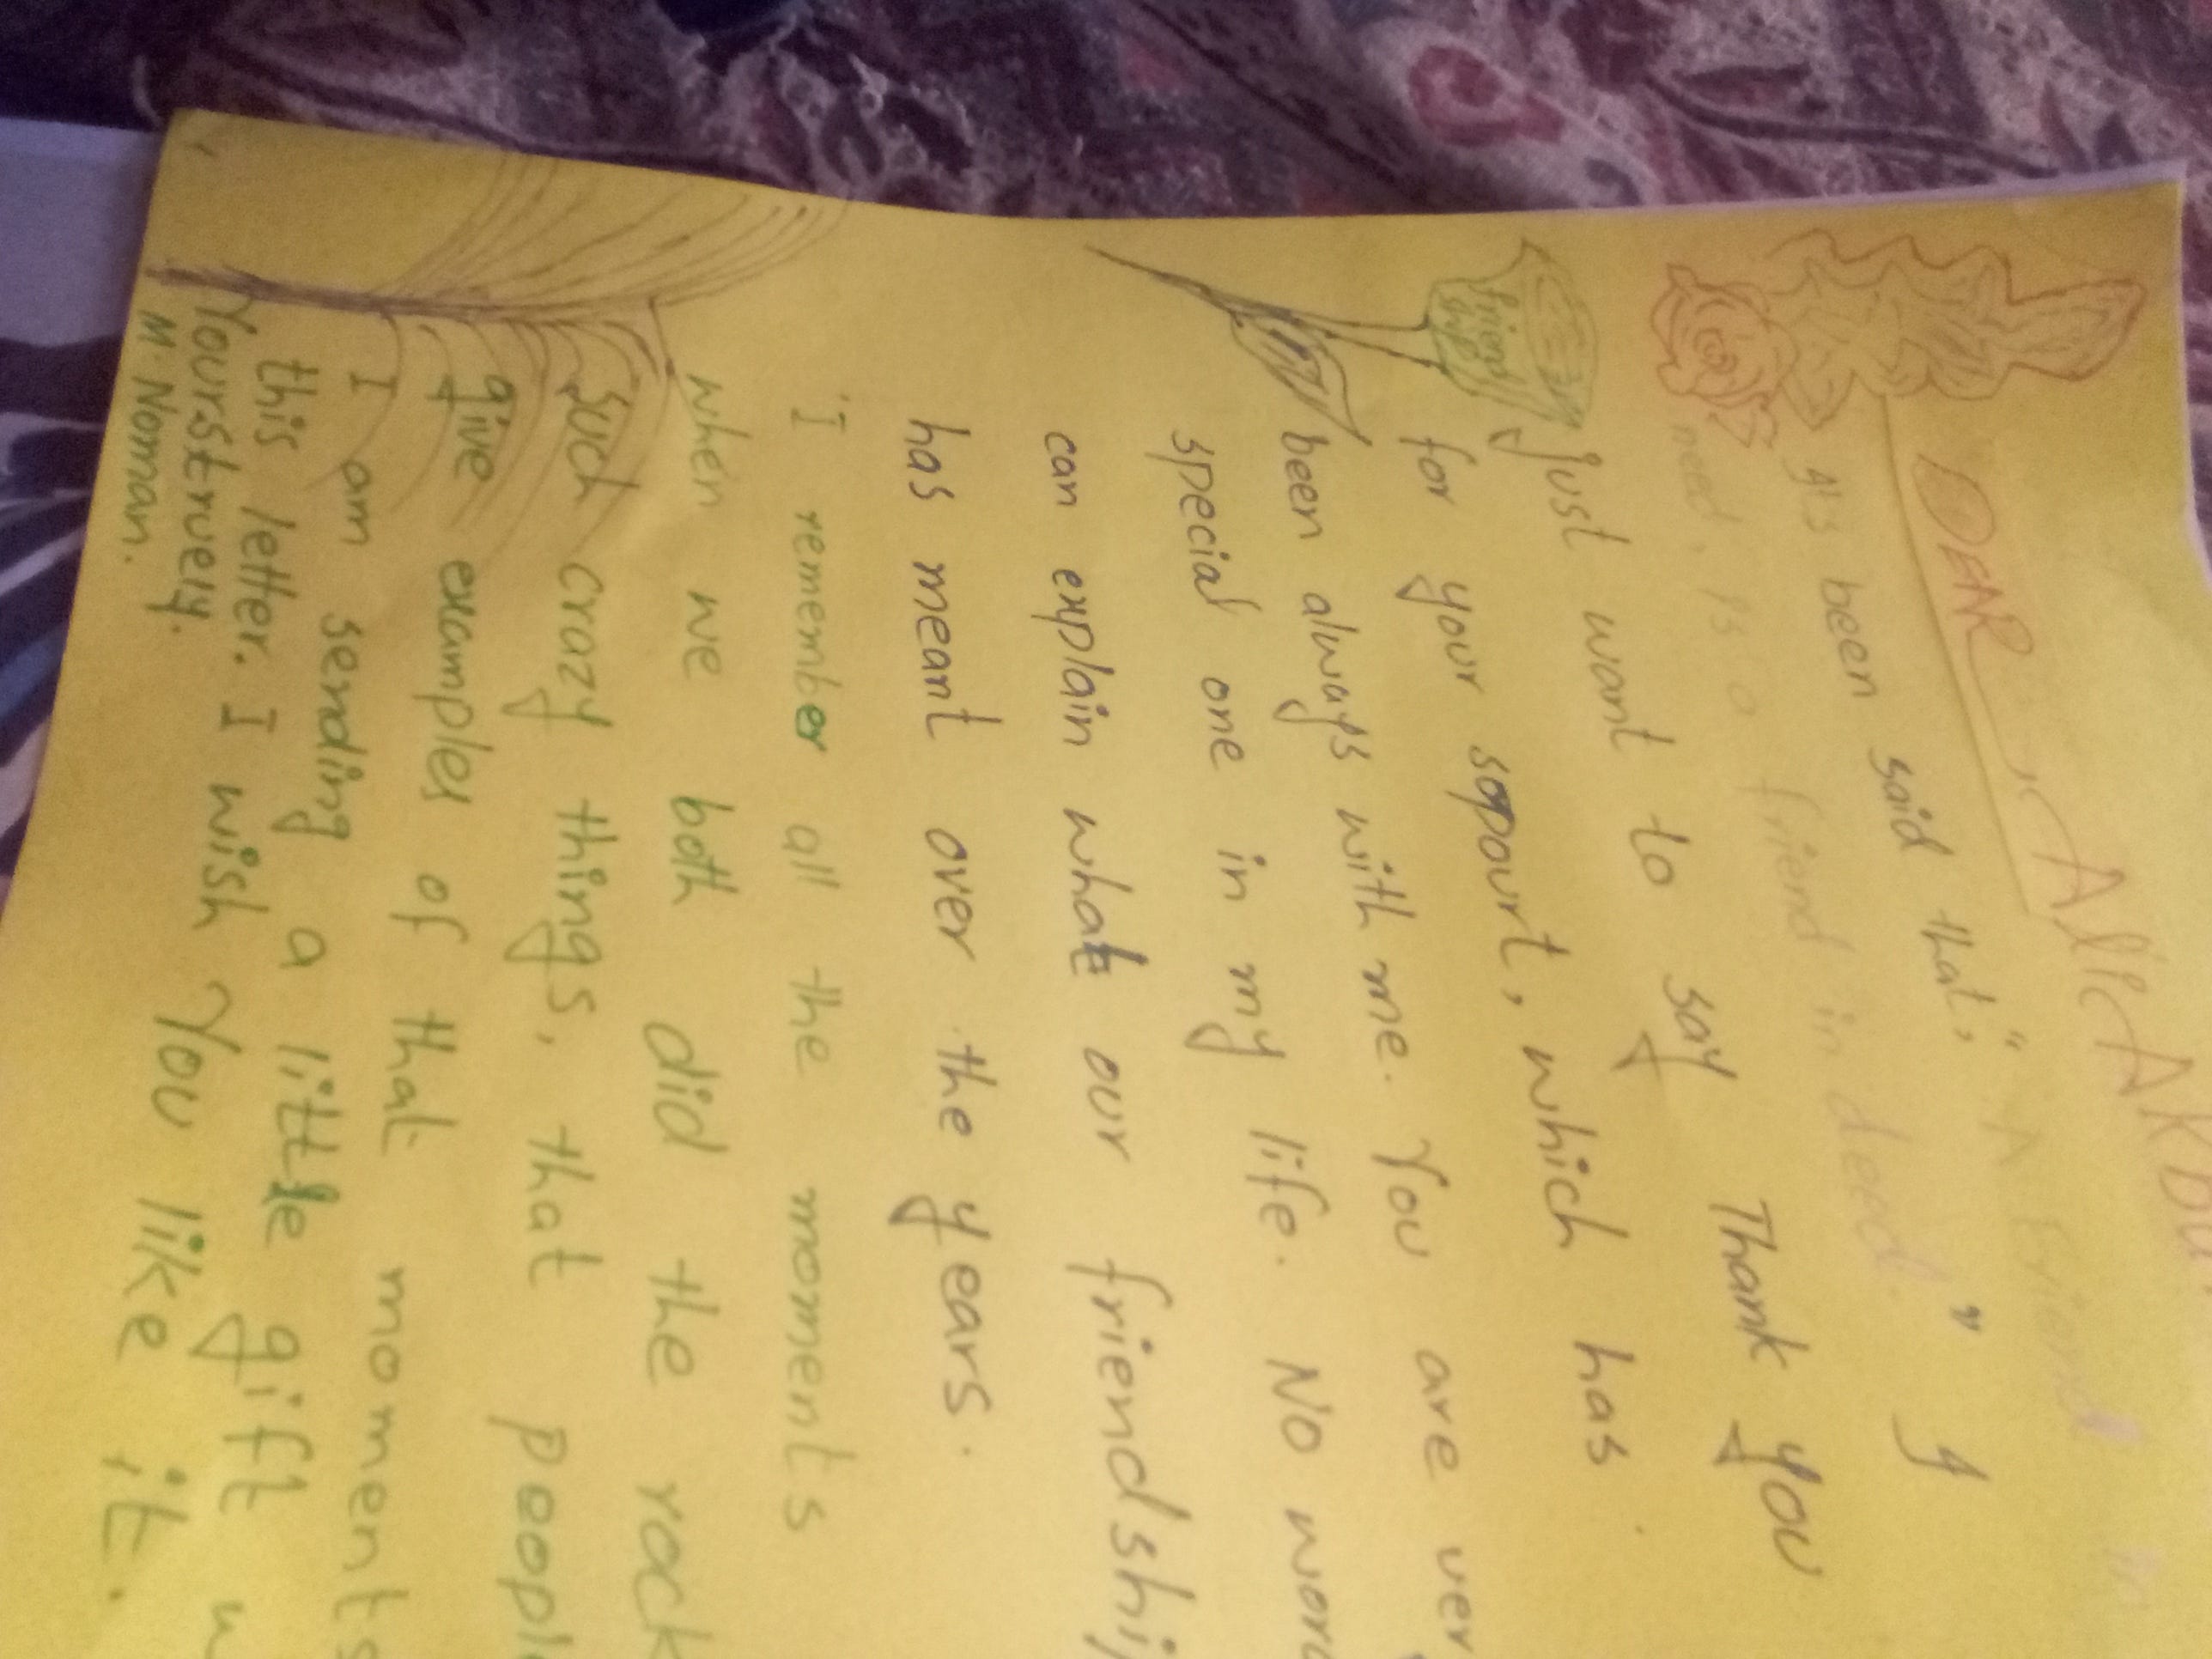 DEAR, Ali AKba
It's been said that, " A friend in
need, is a friend in deed. " I
just want to say Thank you
for your sopourt, which has
been always with me. You are ver
special one in my life. No word
can explain what our friendship
has meant over the years.
I remember all the moments
when we both did the rock
such crazy things, that peopl
give examples of that moments
I am sending a little gift w
this letter. I wish You like it.
Yourstruely.
M. Noman.